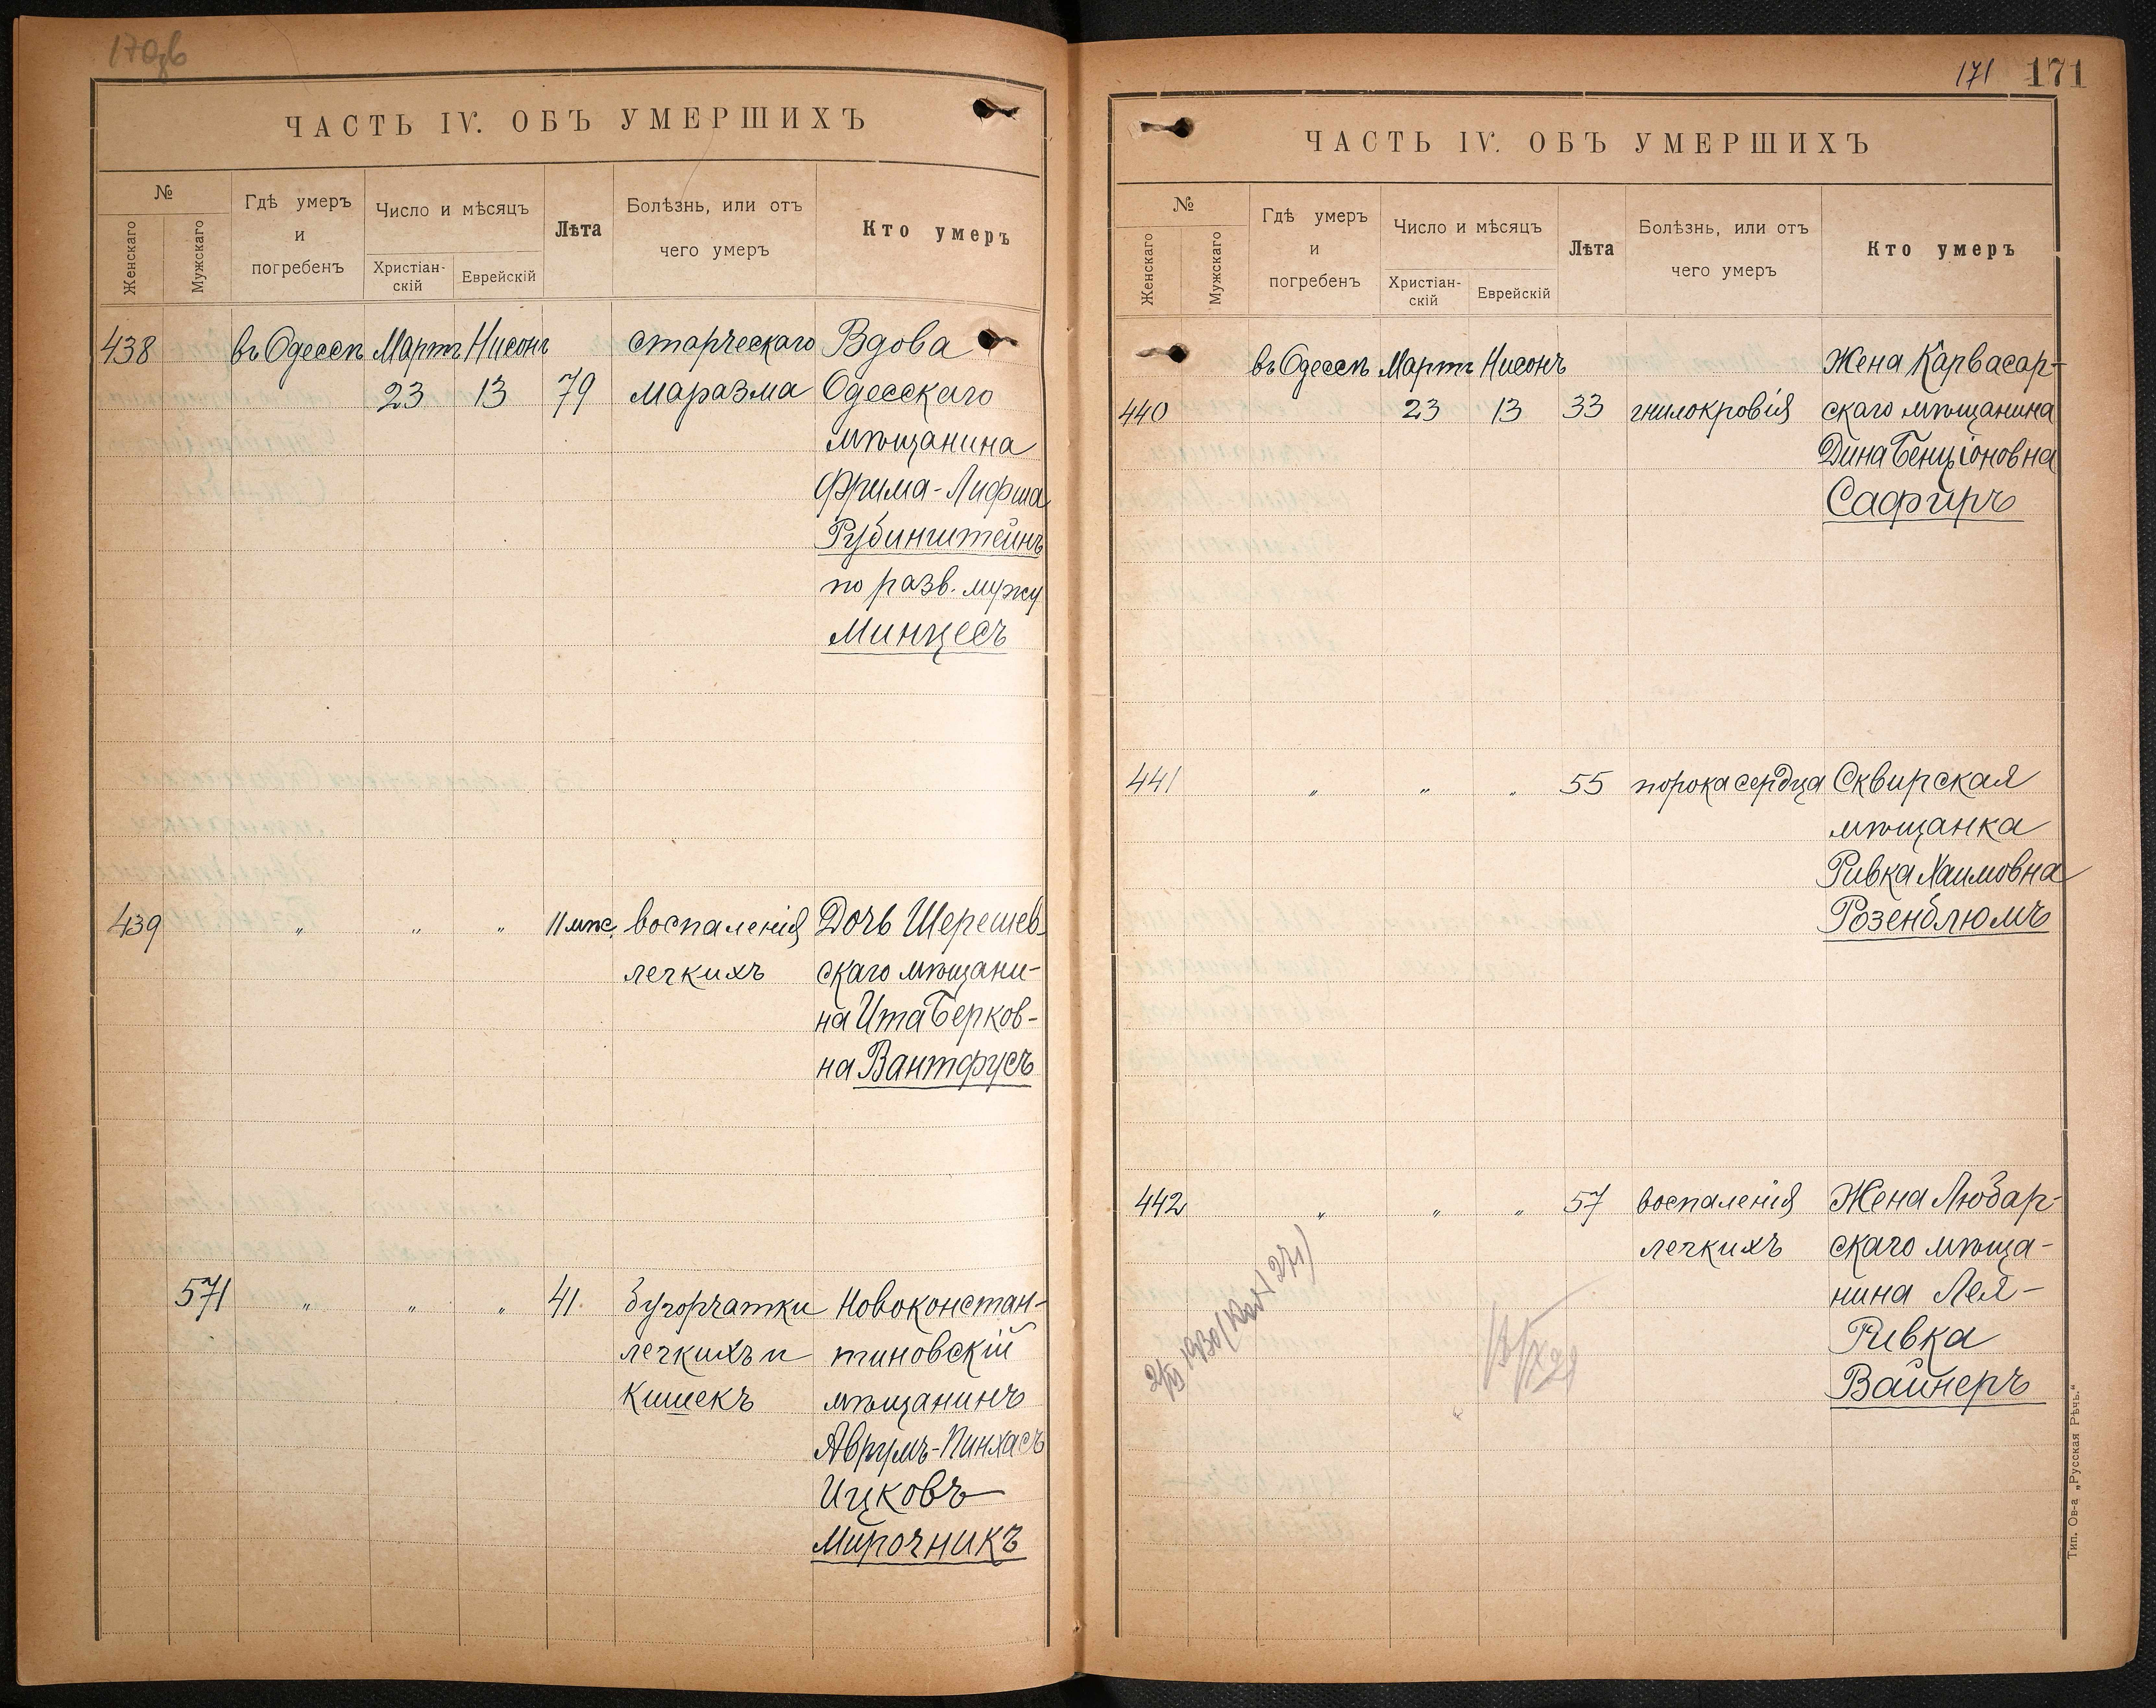 170об
ЧАСТЬ IV. ОБЪ УМЕРШИХЪ
№
Женскаго
Мужскаго
Гдѣ умеръ
и
погребенъ
Число и мѣсяцъ
Христіан-
скій
Еврейскій
Лѣта
Болѣзнь, или отъ
чего умеръ
Кто умеръ
438 въ Одессѣ Мартъ Нисонъ старческаго Вдова
23 13 79 маразма Одесскаго
мѣщанина
Фрима-Лифша
Рубинштейнъ
по разв. мужу
Минцесъ
439 " " " 11 мѣс. воспаленія Дочь Шерешев-
легкихъ скаго мѣщани-
на Ита Берков-
на Вантфусъ
571 " " " 41 бугорчатки Новоконстан-
легкихъ и тиновскій
кишекъ мѣщанинъ
Аврумъ-Пинхасъ
Ицковъ
Мирочникъ
171 171
ЧАСТЬ IV. ОБЪ УМЕРШИХЪ
№
Женскаго
Мужскаго
Гдѣ умеръ
и
погребенъ
Число и мѣсяцъ
Христіан-
скій
Еврейскій
Лѣта
Болѣзнь, или отъ
чего умеръ
Кто умеръ
въ Одессѣ Мартъ Нисонъ Жена Карвасар-
440 23 13 33 гнилокровія скаго мѣщанина
Дина Бенціоновна
Сафиръ
441 " " " 55 порока сердца Сквирская
мѣщанка
Ривка Хаимовна
Розенблюмъ
442 " " " 57 воспаленія Жена Любар-
легкихъ скаго мѣща-
нина Лея-
Ривка
Вайнеръ
Тип. Ов-а „Русская Рѣчь."